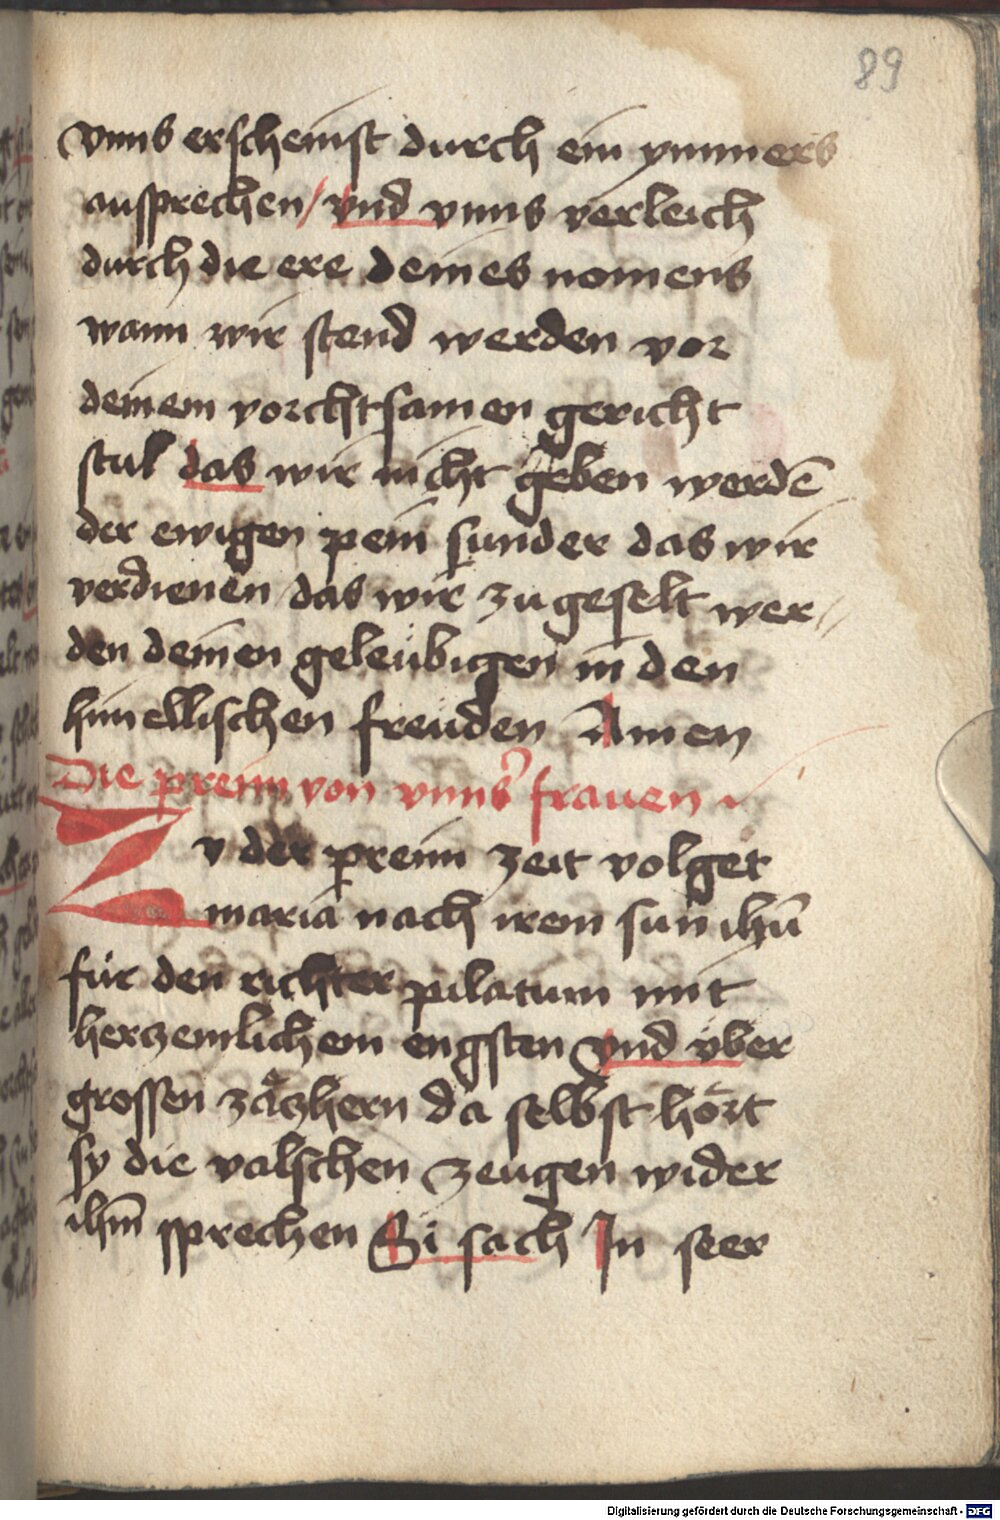 89
vnns erscheinst durch ein ynnners
ansprechen / vnd vnns verleich
durch die ere deines nomens
wann wir stend werden vor
deinem vorchtsamen gericht
stul das wir nicht geben werdē
der ewigen pein sunder das wir
verdienen das wir zu geselt wer//
den deinen geleubigen in den
himellischen freuden Amen
Die preim von vnns' frauen
Zv der preim zeit volget
maria nach irem sun ihū
für den richter pilatum mit
herzenlichem engsten vnd vber
grossen zaͤzhern da selbst hoͤrt
sy die valschen zeugen wider
ihm̄ sprechen Si sach In seer
Digitalisierung gefördert durch die Deutsche Forschungsgemeinschaft - DFG